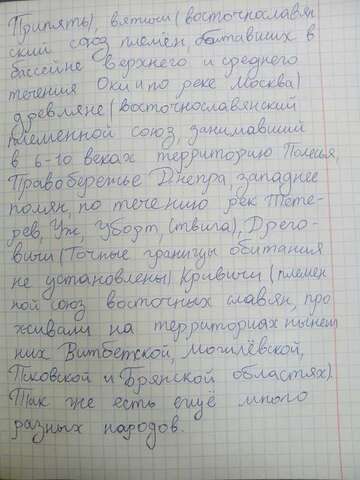 Припяты), вятичи (восточнославян
ский союз племён, обитавших в
бассейне Верхнего и среднего
течения Оки и по реке Москва)
древляне (восточнославянский
племенной союз, занимавший
в 6-10 веках территорию Полесья,
Правобережье Днепра, западнее
полян, по течению рек Тете-
рев, Уж, Уборт, Ствига), Дрего-
вичи (Точные границы обитания
не установлены) Кривичи (племен
ной союз восточных славян, про
живали на территориях нынеш
них Витбетской, Могилёвской,
Псковской и Брянской областях).
Так же есть ещё много
разных народов.